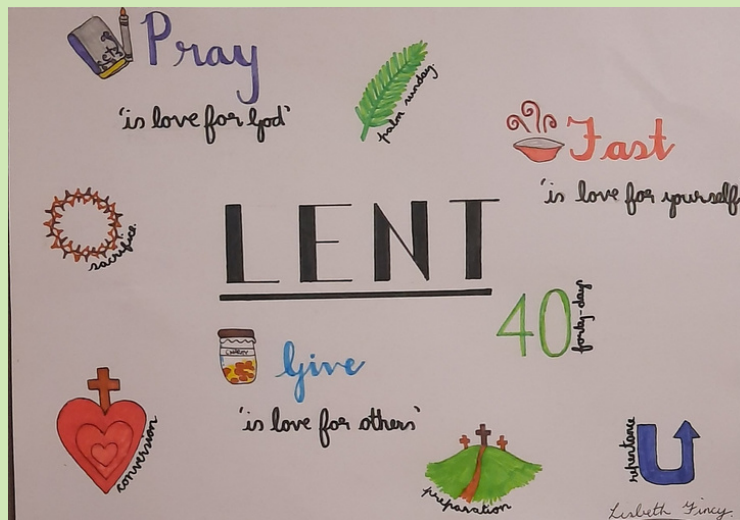 Pray
'is love for God'
palm sunday.
Fast
'is love for yourself
sacrifice.
LENT
40
forty-days
CHARITY
Give
'is love for others'
conversion
preparation
repentance
Lisbeth Fincy.